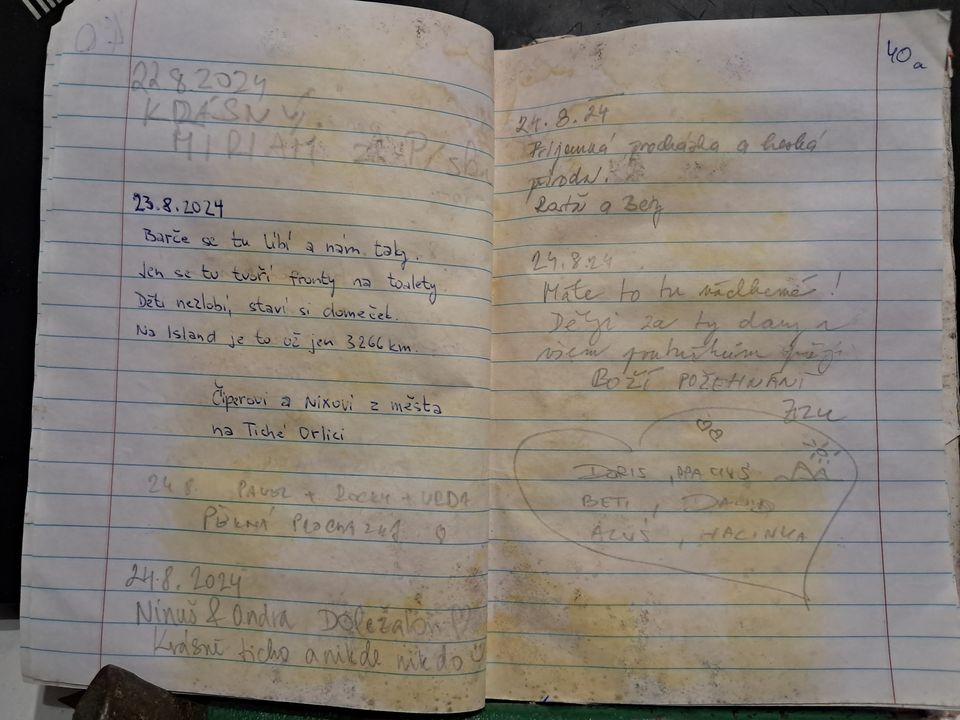 22.8.2024
KRÁSNÝ
MIRIAM
23.8.2024
Barče se tu líbí a nám taky.
Jen se tu tvoří fronty na toalety
Děti nezlobí, staví si domeček.
Na Island je to už jen 3266 km.
Čiperovi a Nixovi z města
na Tiché Orlici
24.8. PAVEL + ROCKY +
PĚKNÁ
24.8.2024
Ninuš & Ondra Doležalovi
Krásně ticho a nikde nikdo
40a
24.8.24
Příjemná procházka a hezká
příroda.
a
24.8.24
Máte to tu nádherné!
Děkji za ty dary a
všem
BOŽÍ POŽEHNÁNÍ
DORIS,
BETI, DAVID
HALINKA